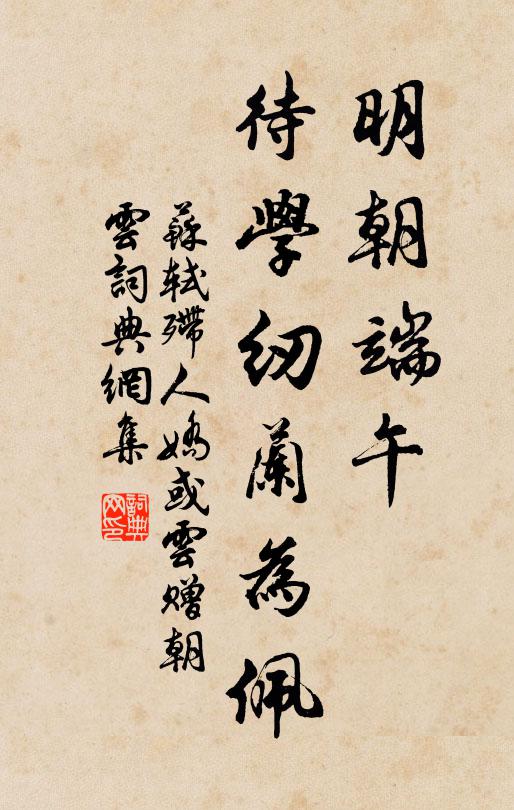 明朝端午
待學紉蘭為佩
蘇軾殢人嬌或雲贈朝
雲詞典網集
詞典
网印